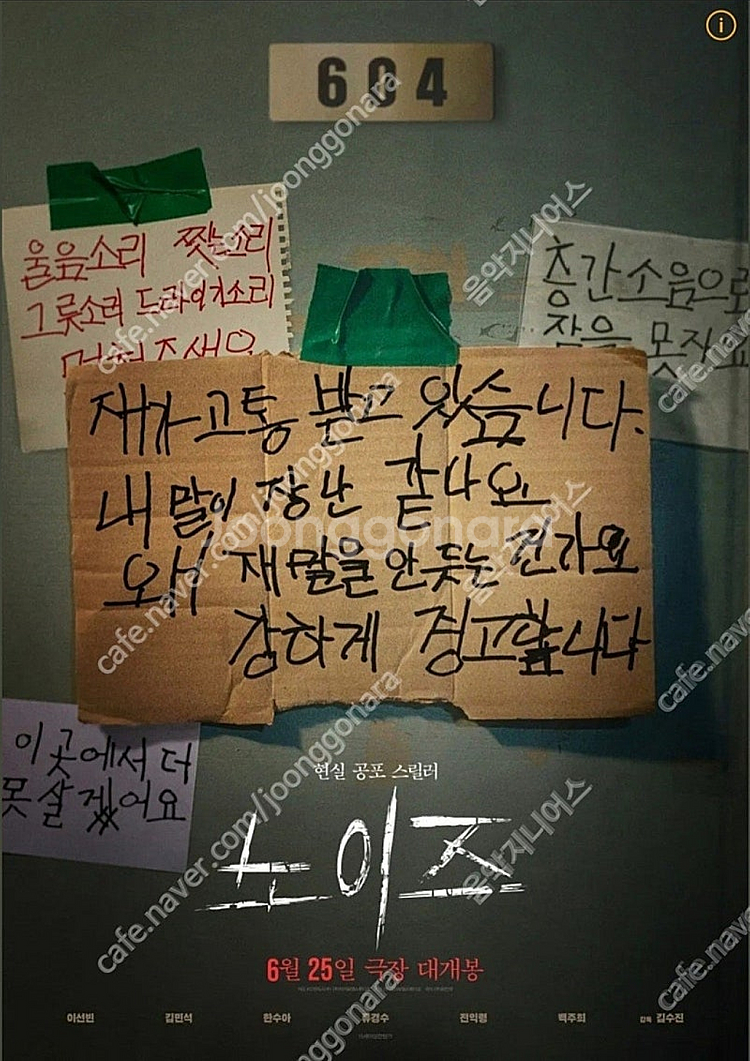 604
울음소리 찢는소리
그릇소리 드라이기소리
멈춰주세요
층간소음으로
잠을 못자요
재가 고통 받고 있습니다.
내 말이 장난 같나요
왜 재 말을 안 듯는 건가요
강하게 경고합니다
이곳에서 더
못살겠어요
현실 공포 스릴러
노이즈
6월 25일 극장 대개봉
이선빈 김민석 한수아 류경수 전익령 백주희 감독 김수진
cafe.naver.com/joonggonara
음악지니어스
joonggonara